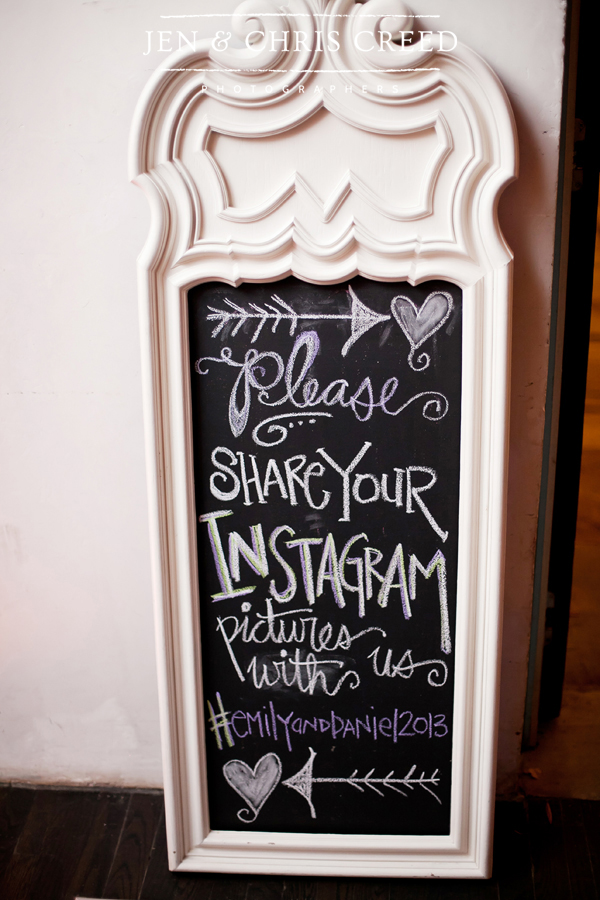 JEN & CHRIS CREED
PHOTOGRAPHERS
Please
SHARe YOUR
INSTAGRAM
pictures
with us
#emilyandDaniel2013